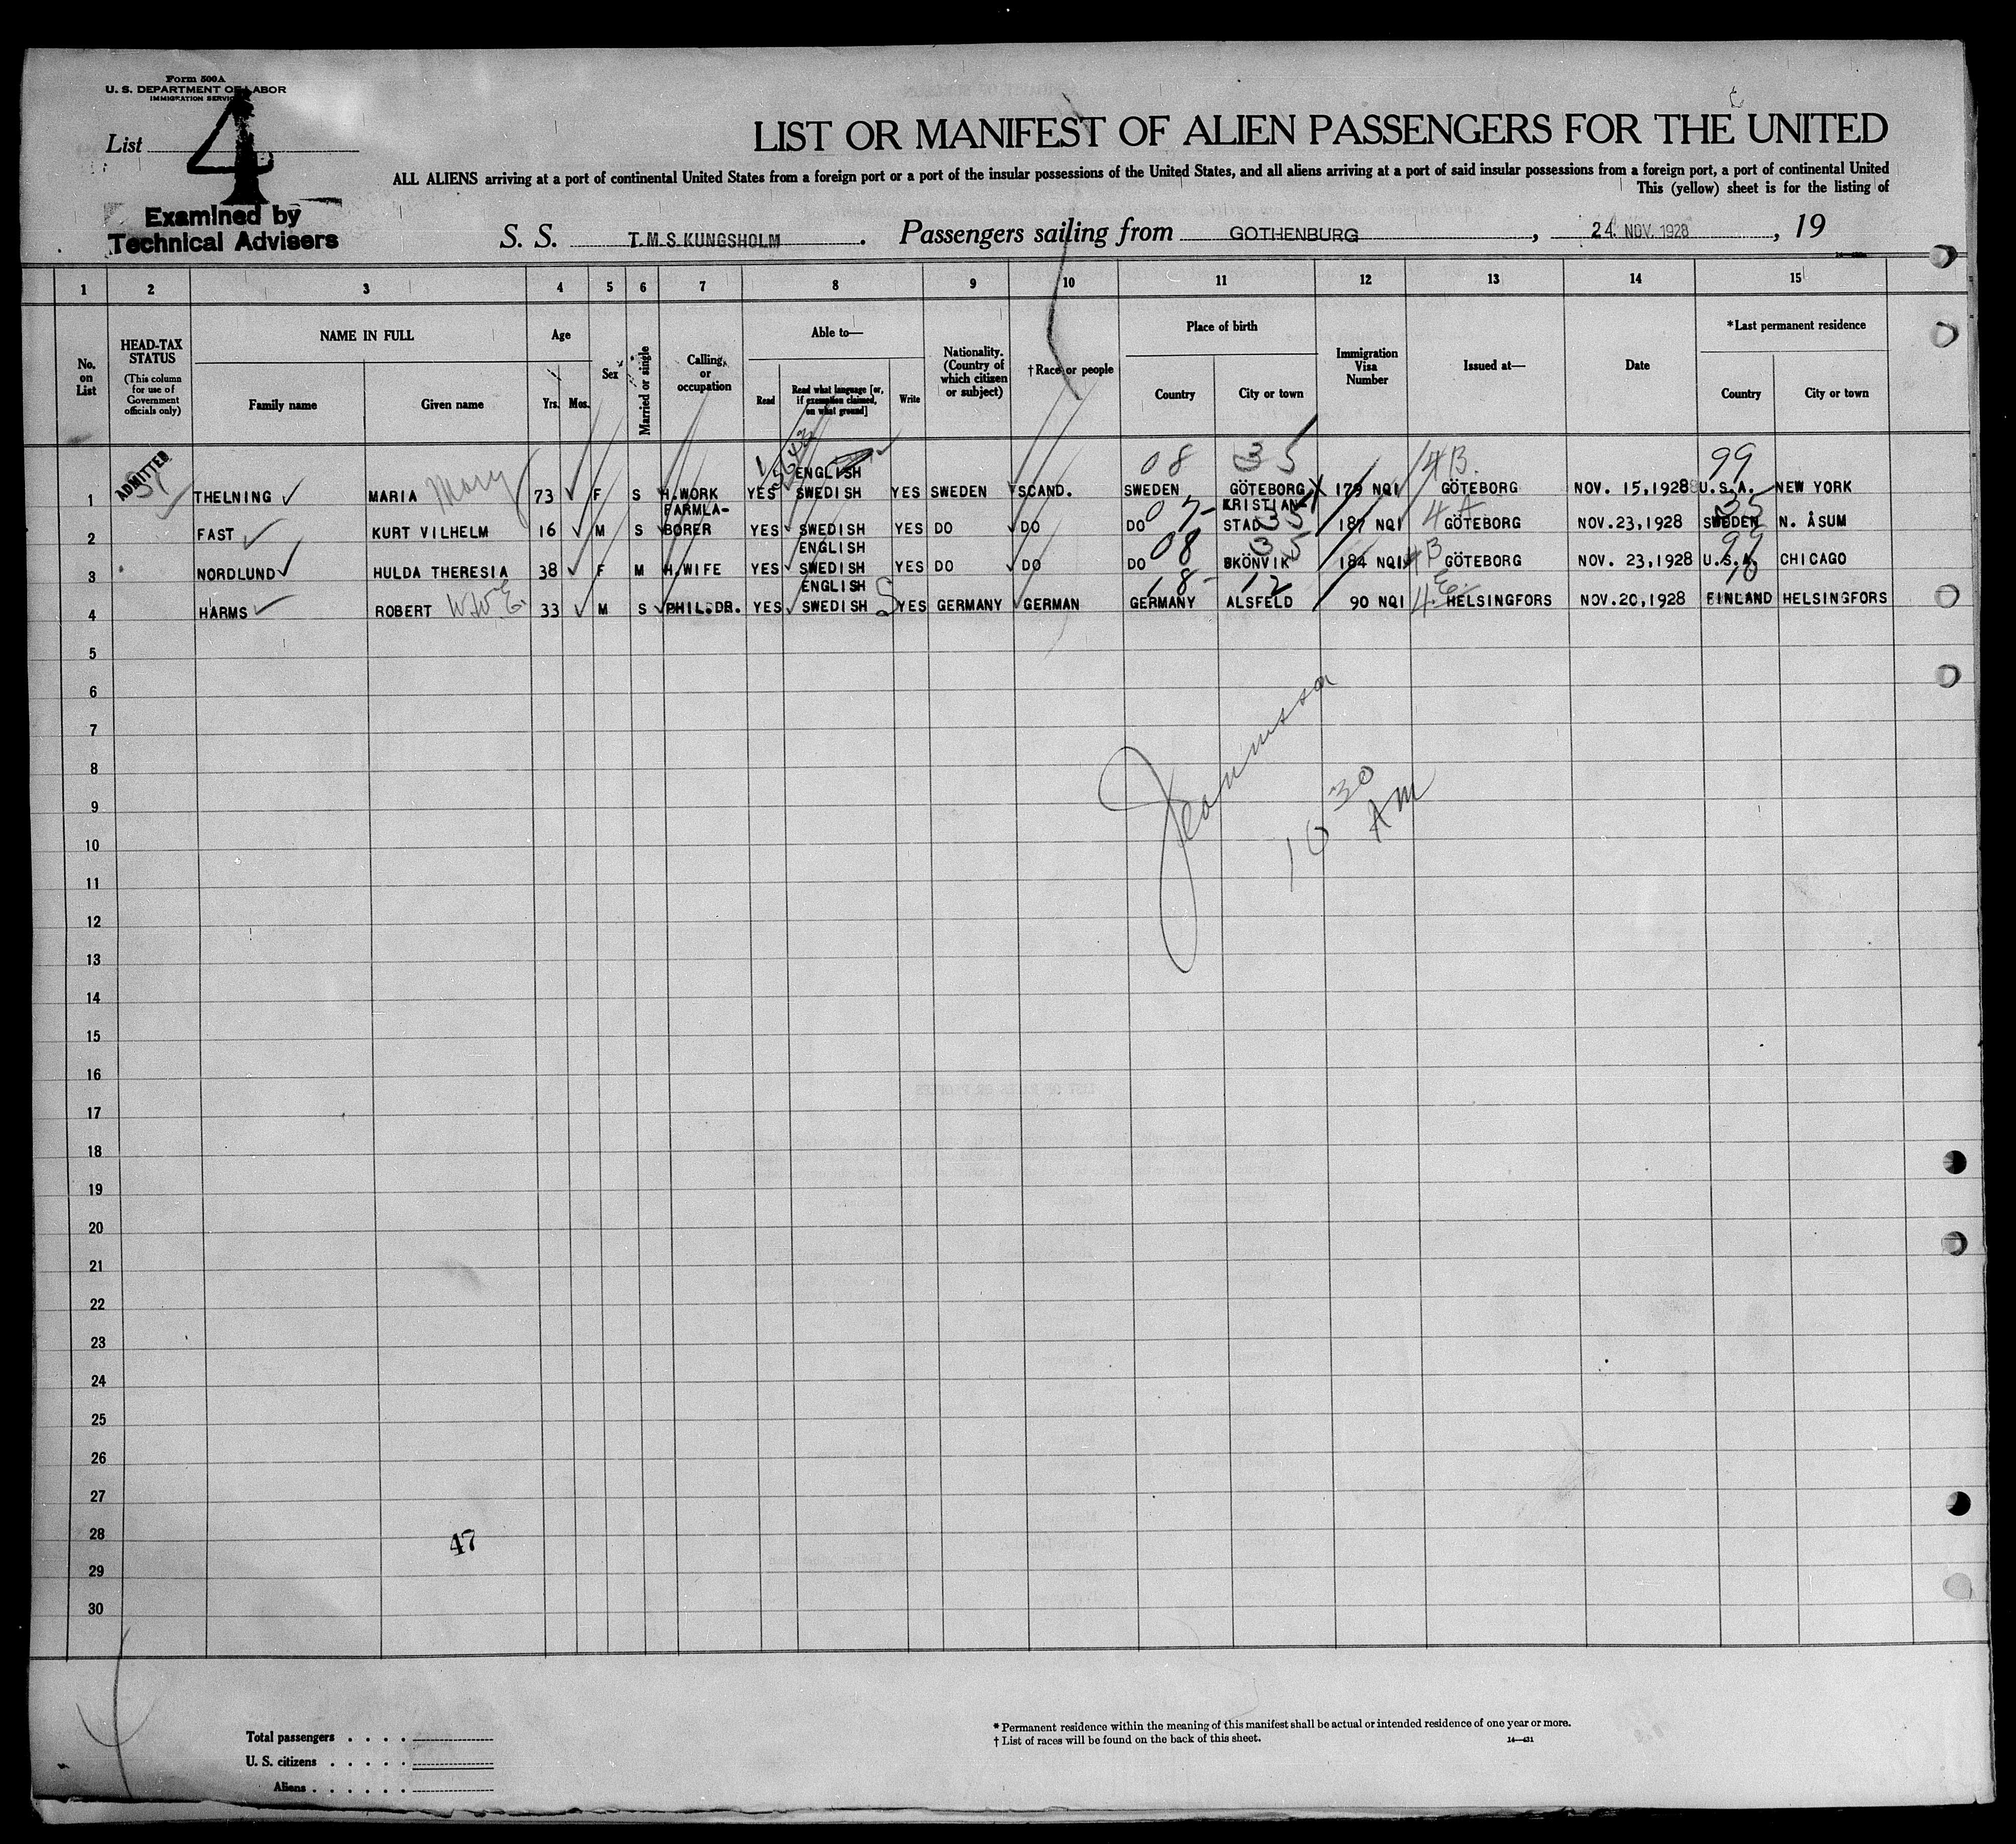 Form 500A
U. S. DEPARTMENT OF LABOR
IMMIGRATION SERVICE
List 4
Examined by
Technical Advisers
LIST OR MANIFEST OF ALIEN PASSENGERS FOR THE UNITED
ALL ALIENS arriving at a port of continental United States from a foreign port or a port of the insular possessions of the United States, and all aliens arriving at a port of said insular possessions from a foreign port, a port of continental United
This (yellow) sheet is for the listing of
S. S. T.M.S. KUNGSHOLM. Passengers sailing from GOTHENBURG, 24. NOV. 1928, 19
1 2 3 4 5 6 7 8 9 10 11 12 13 14 15
No. on List
HEAD-TAX STATUS
(This column for use of Government officials only)
NAME IN FULL
Family name Given name
Age
Yrs. Mos.
Sex
Married or single
Calling or occupation
Able to—
Read
Read what language [or, if exemption claimed, on what ground]
Write
Nationality. (Country of which citizen or subject)
†Race or people
Place of birth
Country City or town
Immigration Visa Number
Issued at—
Date
*Last permanent residence
Country City or town
08 35 4B. 99
ADMITTED ENGLISH
1 THELNING MARIA Mary 73 F S H.WORK YES SWEDISH YES SWEDEN SCAND. SWEDEN GÖTEBORG 179 NQI GÖTEBORG NOV. 15,1928 U.S.A. NEW YORK
FARMLA- KRISTIAN-
2 FAST KURT VILHELM 16 M S BORER YES SWEDISH YES DO DO DO 07 STAD 35 187 NQI 4A GÖTEBORG NOV.23,1928 SWEDEN 35 N. ÅSUM
ENGLISH 08 35 99
3 NORDLUND HULDA THERESIA 38 F M H.WIFE YES SWEDISH YES DO DO DO SKÖNVIK 184 NQI 4B GÖTEBORG NOV. 23,1928 U.S.A. CHICAGO
ENGLISH 18- 12 10
4 HARMS ROBERT W.W.E. 33 M S PHIL.DR. YES SWEDISH YES GERMANY GERMAN GERMANY ALSFELD 90 NQI 4.E. HELSINGFORS NOV.20,1928 FINLAND HELSINGFORS
5
6
7
8
9
10
11
12
13
14
15
16
17
18
19
20
21
22
23
24
25
26
27
28
29
30
10 30
AM
47
Total passengers . . . .
U. S. citizens . . . . .
Aliens . . . . . .
* Permanent residence within the meaning of this manifest shall be actual or intended residence of one year or more.
† List of races will be found on the back of this sheet.
14—431